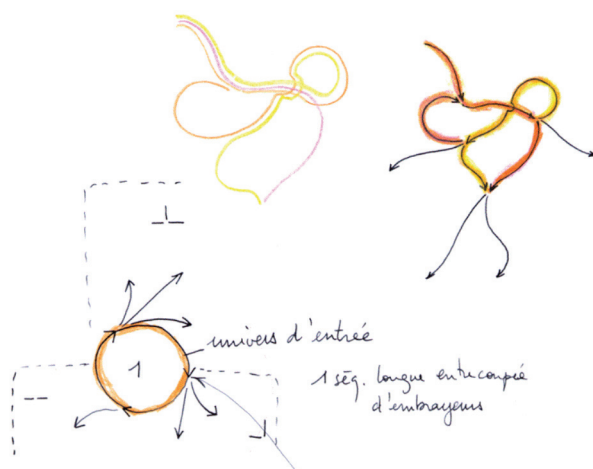 1
univers d'entrée
1 séq. longue entrecoupée
d'embrayeurs